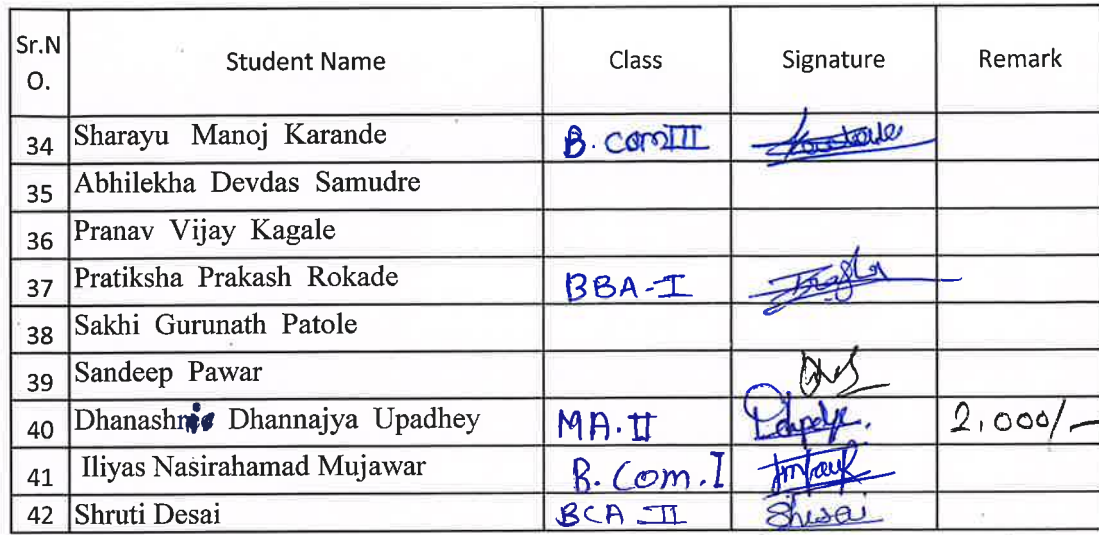 Sr.N O. Student Name Class Signature Remark
34 Sharayu Manoj Karande B. com III
35 Abhilekha Devdas Samudre
36 Pranav Vijay Kagale
37 Pratiksha Prakash Rokade BBA-I
38 Sakhi Gurunath Patole
39 Sandeep Pawar
40 Dhanashrie Dhannajya Upadhey MA.II 2,000/-
41 Iliyas Nasirahamad Mujawar B. Com. I
42 Shruti Desai BCA II